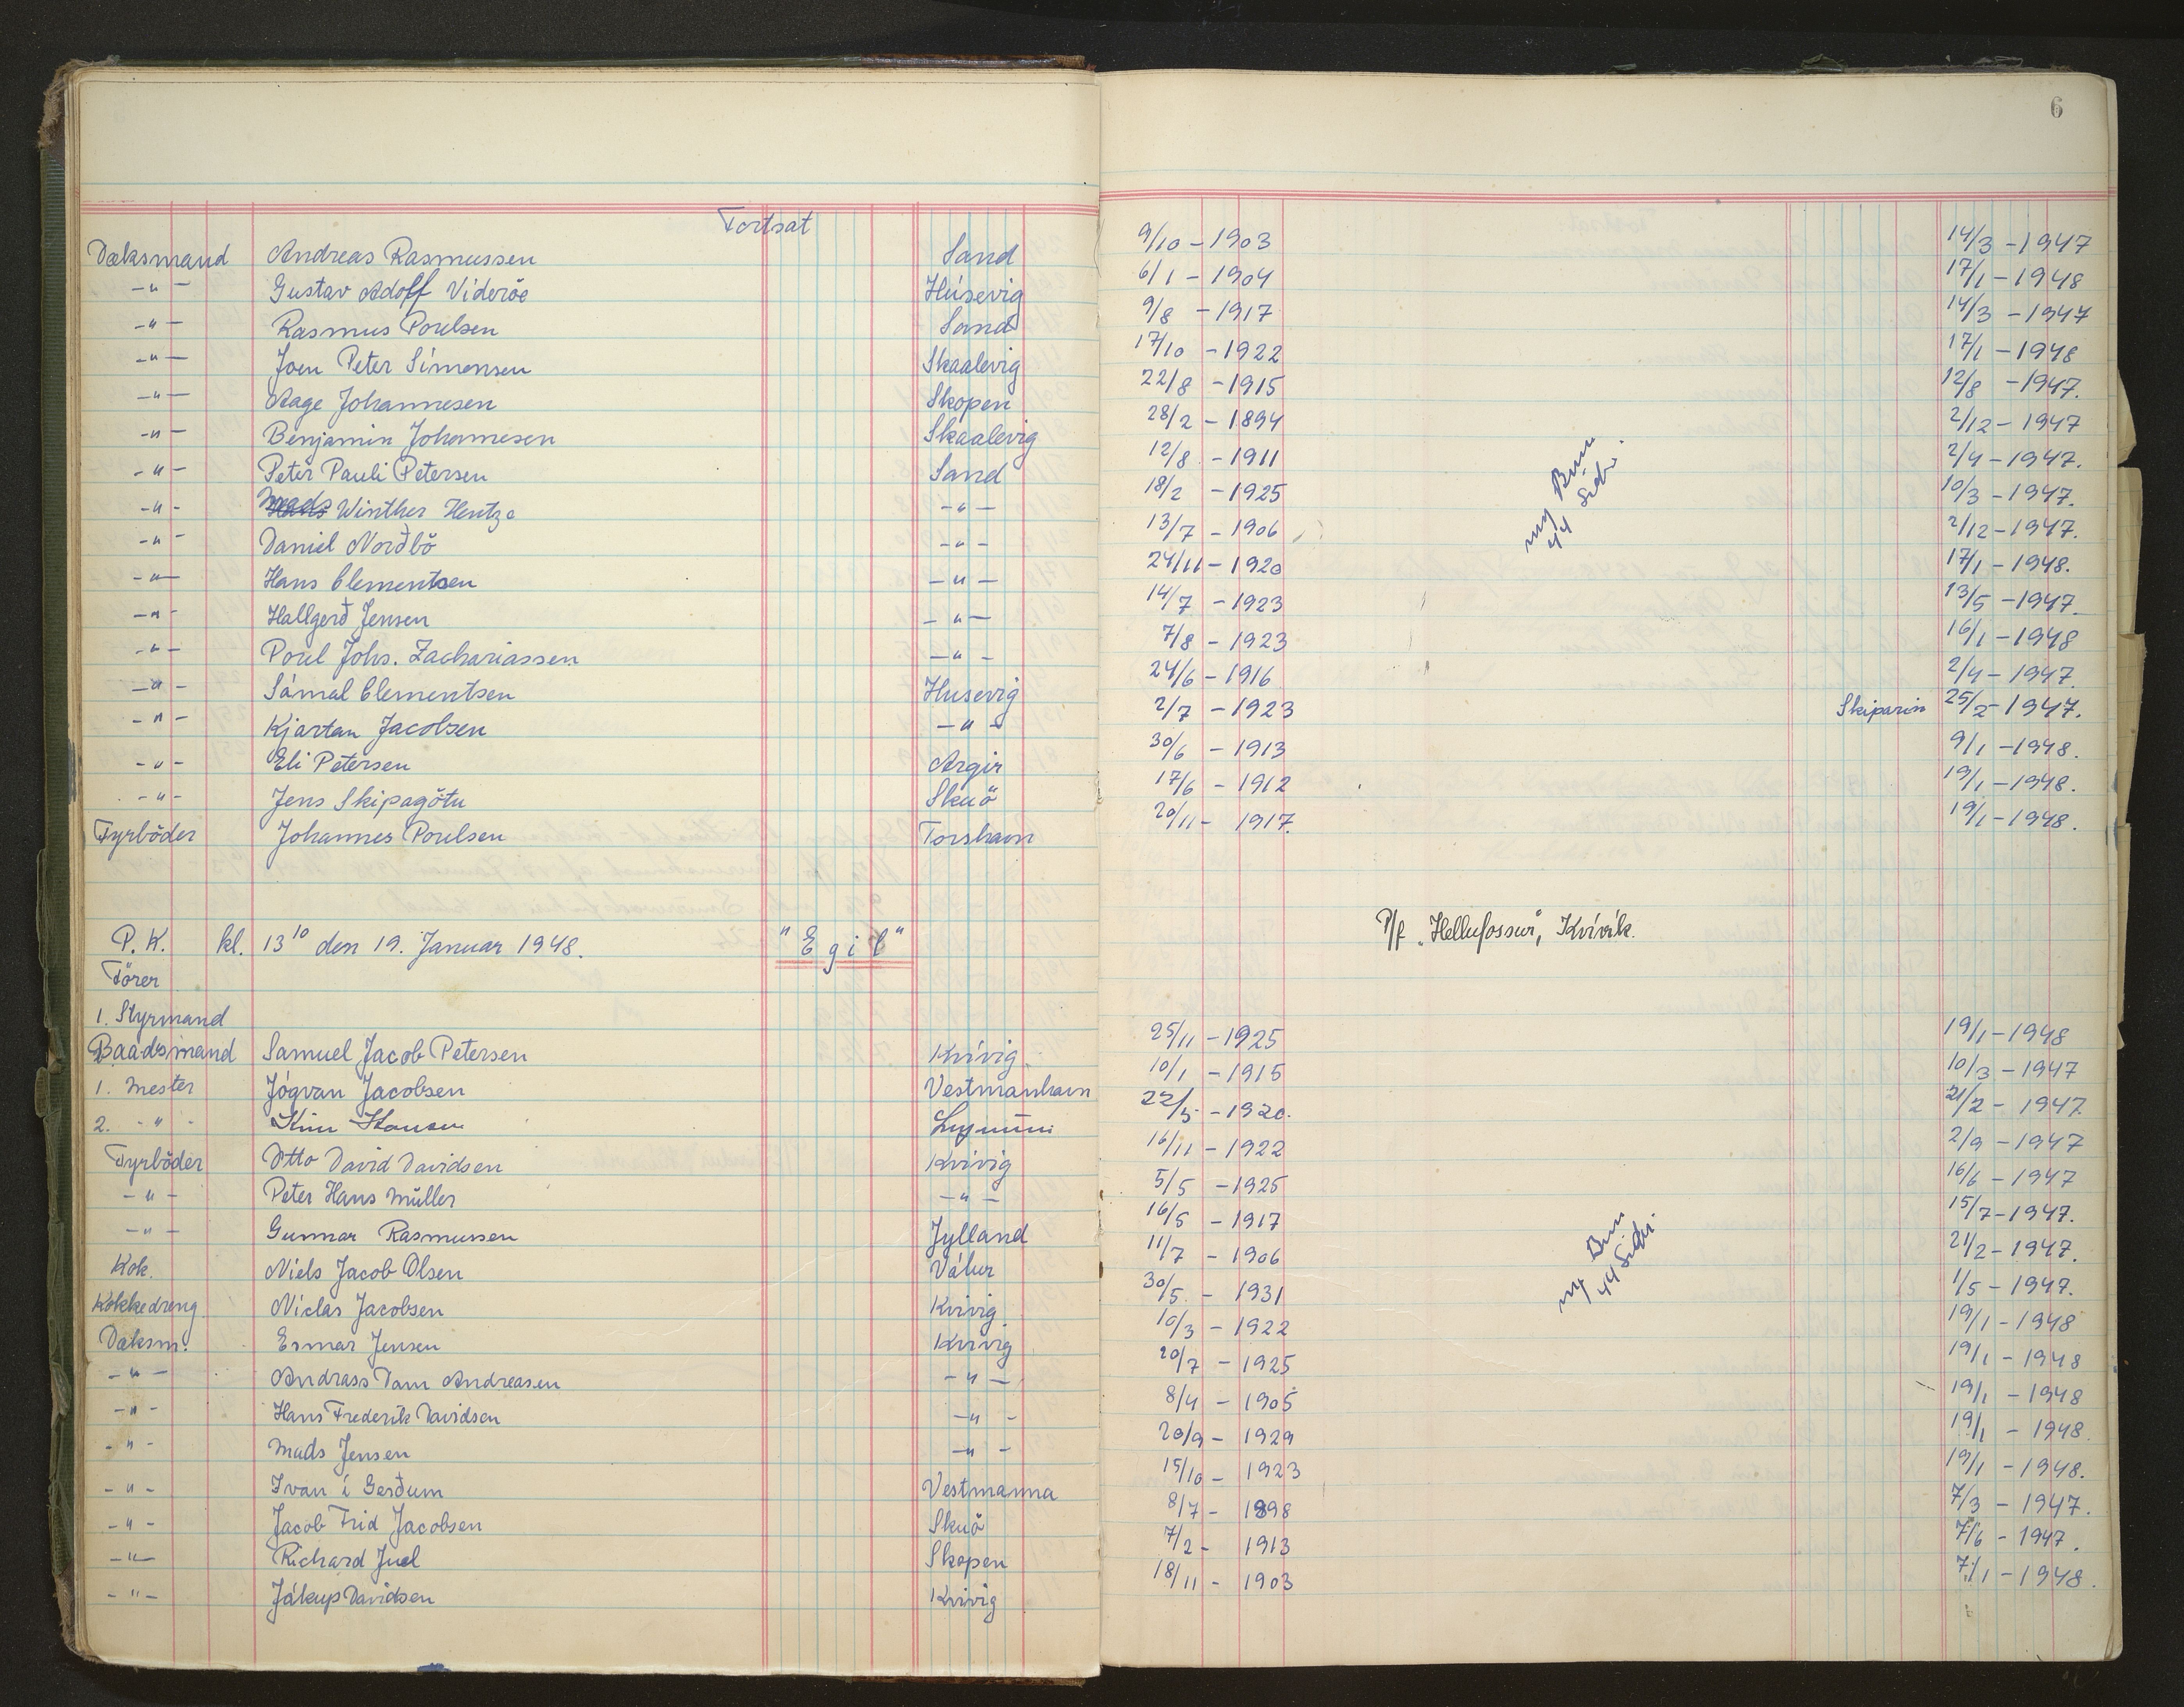 6
Fortsat
Dæksmand Andreas Rasmussen Sand 9/10 - 1903 14/3 - 1947
-"- Gustav Adolf Videröe Húsevig 6/1 - 1904 17/1 - 1948
-"- Rasmus Poulsen Sand 9/8 - 1917 14/3 - 1947
-"- Joen Peter Símonsen Skaalevig 17/10 - 1922 17/1 - 1948
-"- Aage Johannesen Skopen 22/8 - 1915 12/8 - 1947.
-"- Benjamin Johannesen Skaalevig 28/2 - 1894 2/12 - 1947
-"- Peter Pauli Petersen Sand 12/8 - 1911 2/4 - 1947.
-"- Mads Winther Hentze -"- 18/2 - 1925 10/3 - 1947.
-"- Daniel Norðbö -"- 13/7 - 1906 2/12 - 1947.
-"- Hans Clementsen -"- 24/11 - 1920 17/1 - 1948.
-"- Hallgerð Jensen -"- 14/7 - 1923 13/5 - 1947.
-"- Poul Johs. Zachariassen -"- 7/8 - 1923 16/1 - 1948
-"- Sámal Clementsen Husevig 24/6 - 1916 2/4 - 1947.
-"- Kjartan Jacobsen -"- 2/7 - 1923 Skiparin 25/2 - 1947.
-"- Eli Petersen Argir 30/6 - 1913 9/1 - 1948.
-"- Jens Skipagötu Skuö 17/6 - 1912 19/1 - 1948.
Fyrböder Johannes Poulsen Torshavn 20/11 - 1917. 19/1 - 1948.
44 Sidu.
P.K. kl. 13 10 den 19. Januar 1948. "Egil" P/f „Hellufossur", Kvívík.
Förer
1. Styrmand
Baadsmand Samuel Jacob Petersen Kvívig 25/11 - 1925 19/1 - 1948
1. Mester Jógvan Jacobsen Vestmanhavn 10/1 - 1915 10/3 - 1947
2. -"- Hansen 22/5 - 1920. 21/2 - 1947
Fyrböder Otto David Davidsen Kvivig 16/11 - 1922 2/9 - 1947
-"- Peter Hans Müller -"- 5/5 - 1925 16/6 - 1947
-"- Gunnar Rasmussen Jylland 16/5 - 1917 15/7 - 1947.
Kok. Niels Jacob Olsen Válur 11/7 - 1906 21/2 - 1947.
Kokkedreng Niclas Jacobsen Kvivig. 30/5 - 1931 1/5 - 1947.
Dæksm. Esmar Jensen Kvivig 10/3 - 1922 19/1 - 1948
-"- Andrass Dam Andreasen -"- 20/7 - 1925 19/1 - 1948
-"- Hans Frederik Davidsen -"- 8/4 - 1905 19/1 - 1948
-"- Mads Jensen -"- 20/9 - 1929 19/1 - 1948.
-"- Ivan í Gerðum Vestmanna 15/10 - 1923 19/1 - 1948.
-"- Jacob Frid Jacobsen Skuö 8/7 - 1898 7/3 - 1947.
-"- Richard Juel Skopen 7/2 - 1913 7/6 - 1947.
-"- Jákup Davidsen Kvivig 18/11 - 1903 7/1 - 1948.
44 Sidu.